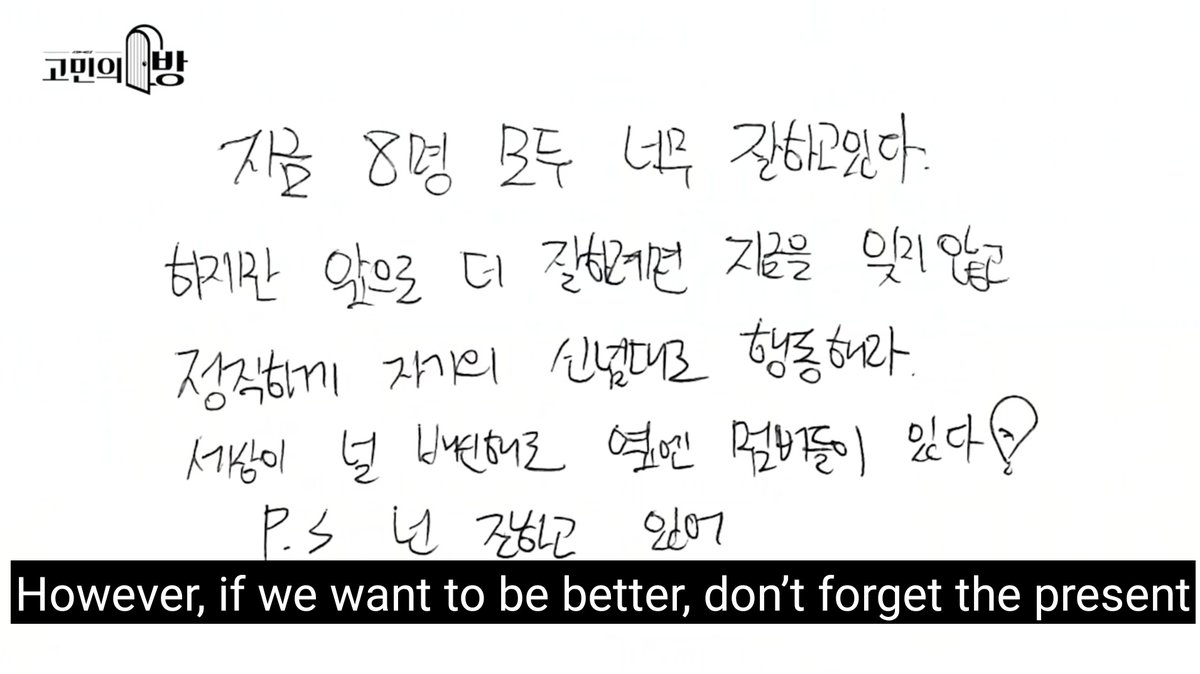 고민의방
지금 8명 모두 너무 잘하고있다.
하지만 앞으로 더 잘하려면 지금을 잊지 않고
정직하게 자기의 신념대로 행동해라.
세상이 널 옆엔 멤버들이 있다
P.S 넌 잘하고 있어
However, if we want to be better, don't forget the present